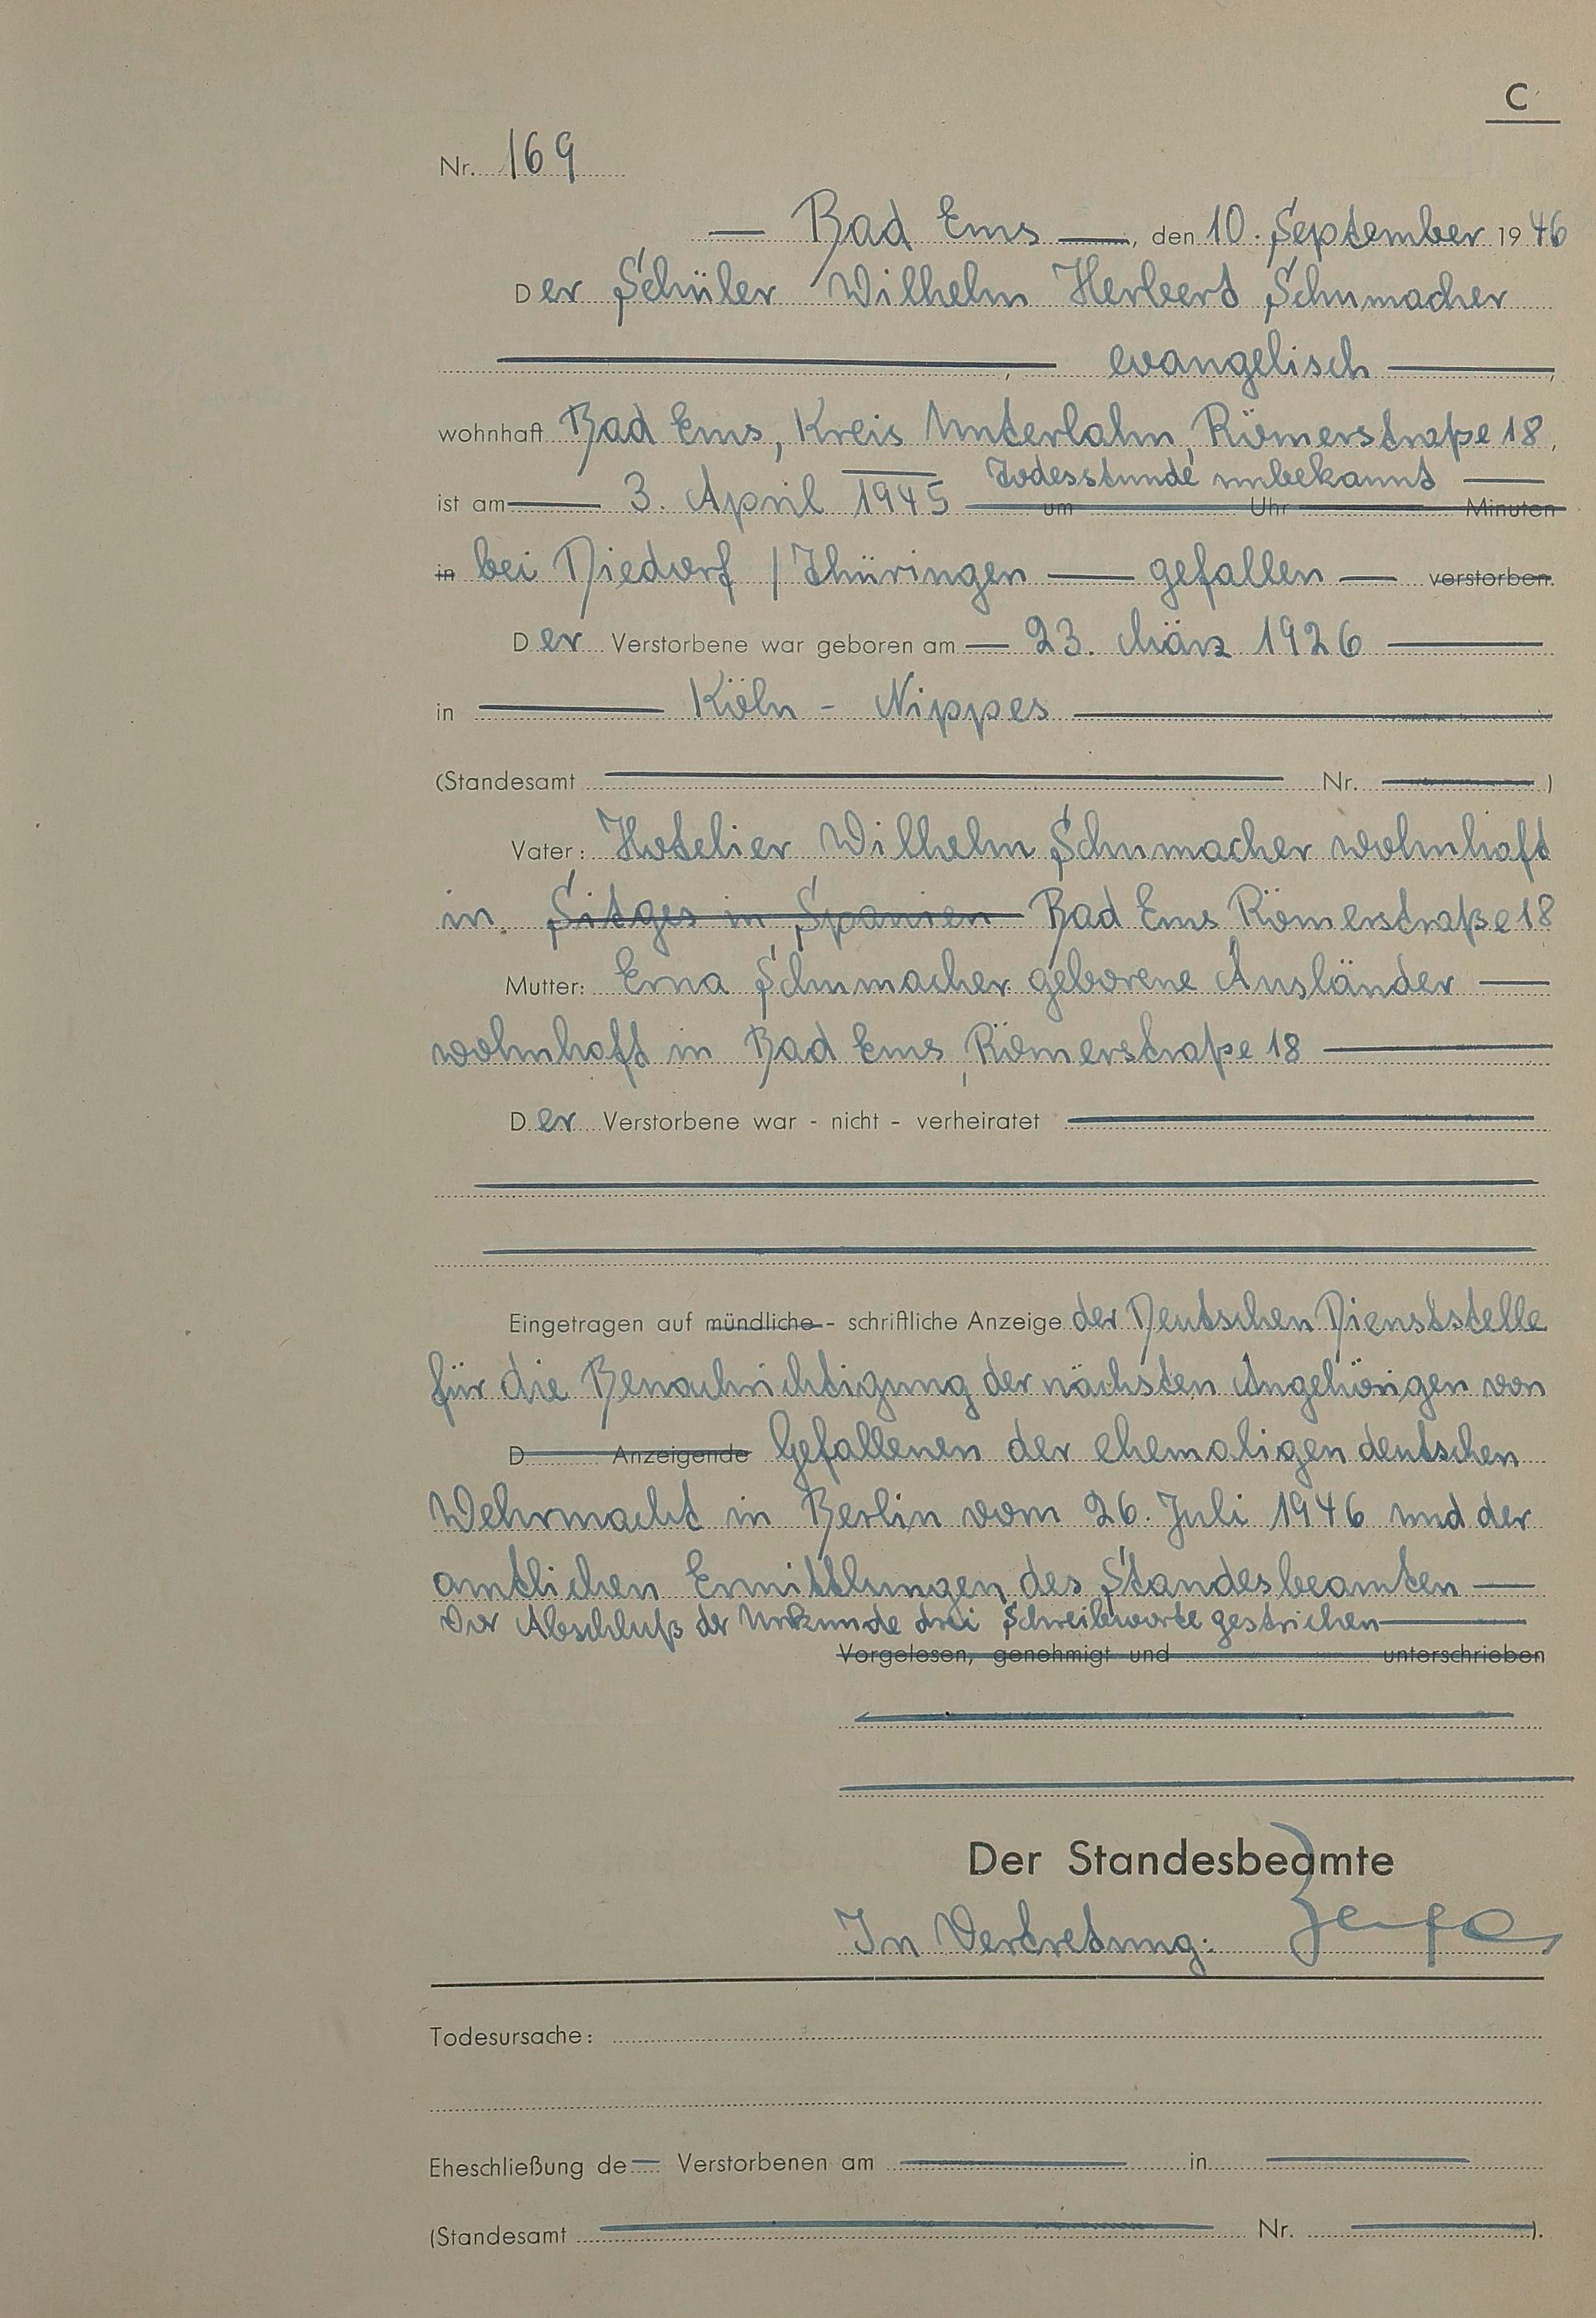 C
Nr. 169
— Bad Ems —, den 10. September 1946
Der Schüler Wilhelm Herbert Schumacher
—, evangelisch —,
wohnhaft Bad Ems, Kreis Unterlahn, Römerstraße 18,
Todesstunde unbekannt —
ist am — 3. April 1945 — um Uhr — Minuten
in bei Diedorf / Thüringen — gefallen — verstorben.
Der Verstorbene war geboren am — 23. März 1926 —
in — Köln - Nippes —
(Standesamt — Nr. —)
Vater: Hotelier Wilhelm Schumacher wohnhaft
in Sitges in Spanien Bad Ems Römerstraße 18
Mutter: Erna Schumacher geborene Ausländer —
wohnhaft in Bad Ems, Römerstraße 18 —
Der Verstorbene war - nicht - verheiratet —
Eingetragen auf mündliche - schriftliche Anzeige der Deutschen Dienststelle
für die Benachrichtigung der nächsten Angehörigen von
D Anzeigende Gefallenen der ehemaligen deutschen
Wehrmacht in Berlin vom 26. Juli 1946 und der
amtlichen Ermittlungen des Standesbeamten —
Vor Abschluß der Urkunde drei Schreibworte gestrichen —
Vorgelesen, genehmigt und unterschrieben
Der Standesbeamte
In Vertretung:
Todesursache:
Eheschließung de— Verstorbenen am — in —
(Standesamt — Nr. —).